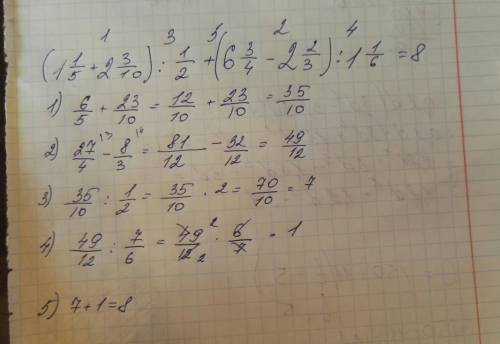 1 3 5 2 4
(1 1/5 + 2 3/10) : 1/2 + (6 3/4 - 2 2/3) : 1 1/6 = 8
1) 6/5 + 23/10 = 12/10 + 23/10 = 35/10
2) 27/4 \3 - 8/3 \4 = 81/12 - 32/12 = 49/12
3) 35/10 : 1/2 = 35/10 · 2 = 70/10 = 7
4) 49/12 : 7/6 = 49/12 2 2 · 6/7 = 1
5) 7+1=8